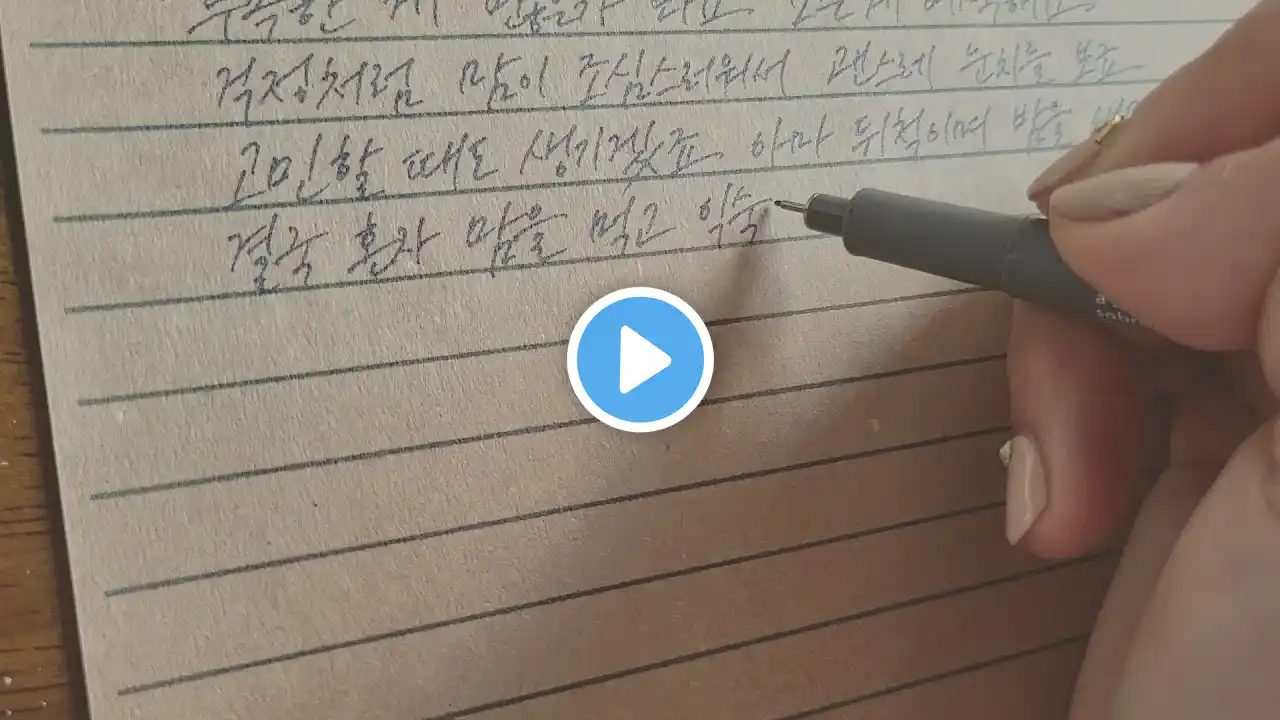 부족한 게 많을까 봐요
걱정처럼 맘이 조심스러워서 괜스레 눈치를 보죠
고민할 때도 생기겠죠 아마 뒤척이며 밤을
결국 혼자 맘을 먹고 익숙